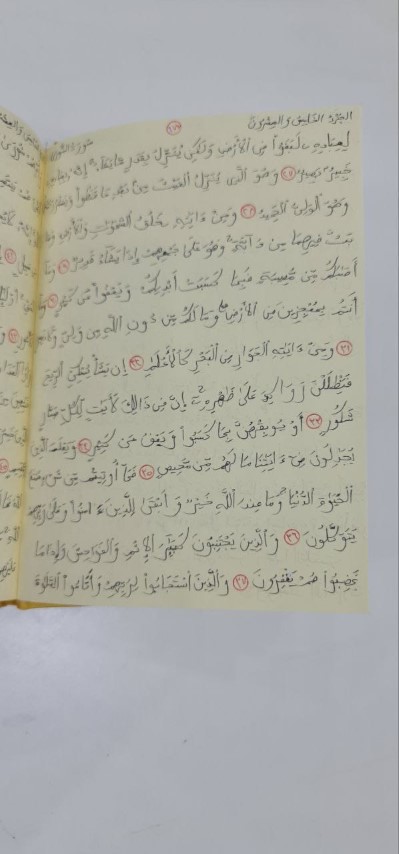 الجزء الخامس والعشرون سورة الشورى
لِعِبَادِهِ لَبَغَوْا۟ فِى ٱلْأَرْضِ وَلَٰكِن يُنَزِّلُ بِقَدَرٍ مَّا يَشَآءُ إِنَّهُۥ
خَبِيرٌۢ بَصِيرٌ ٢٧ وَهُوَ ٱلَّذِى يُنَزِّلُ ٱلْغَيْثَ مِنۢ بَعْدِ مَا قَنَطُوا۟ وَيَنشُرُ
وَهُوَ ٱلْوَلِىُّ ٱلْحَمِيدُ ٢٨ وَمِنْ ءَايَٰتِهِۦ خَلْقُ ٱلسَّمَٰوَٰتِ وَٱلْأَرْضِ وَمَا
بَثَّ فِيهِمَا مِن دَآبَّةٍ وَهُوَ عَلَىٰ جَمْعِهِمْ إِذَا يَشَآءُ قَدِيرٌ ٢٩ وَمَآ
أَصَٰبَكُم مِّن مُّصِيبَةٍ فَبِمَا كَسَبَتْ أَيْدِيكُمْ وَيَعْفُوا۟ عَن كَثِيرٍ ٣٠ وَمَآ
أَنتُم بِمُعْجِزِينَ فِى ٱلْأَرْضِ وَمَا لَكُم مِّن دُونِ ٱللَّهِ مِن وَلِىٍّ وَلَا نَصِيرٍ
٣١ وَمِنْ ءَايَٰتِهِ ٱلْجَوَارِ فِى ٱلْبَحْرِ كَٱلْأَعْلَٰمِ ٣٢ إِن يَشَأْ يُسْكِنِ ٱلرِّيحَ
فَيَظْلَلْنَ رَوَاكِدَ عَلَىٰ ظَهْرِهِۦٓ إِنَّ فِى ذَٰلِكَ لَءَايَٰتٍ لِّكُلِّ صَبَّارٍ
شَكُورٍ ٣٣ أَوْ يُوبِقْهُنَّ بِمَا كَسَبُوا۟ وَيَعْفُ عَن كَثِيرٍ ٣٤ وَيَعْلَمَ ٱلَّذِينَ
يُجَٰدِلُونَ فِىٓ ءَايَٰتِنَا مَا لَهُم مِّن مَّحِيصٍ ٣٥ فَمَآ أُوتِيتُم مِّن شَىْءٍ فَمَتَٰعُ
ٱلْحَيَوٰةِ ٱلدُّنْيَا وَمَا عِندَ ٱللَّهِ خَيْرٌ وَأَبْقَىٰ لِلَّذِينَ ءَامَنُوا۟ وَعَلَىٰ رَبِّهِمْ
يَتَوَكَّلُونَ ٣٦ وَٱلَّذِينَ يَجْتَنِبُونَ كَبَٰٓئِرَ ٱلْإِثْمِ وَٱلْفَوَٰحِشَ وَإِذَا مَا
غَضِبُوا۟ هُمْ يَغْفِرُونَ ٣٧ وَٱلَّذِينَ ٱسْتَجَابُوا۟ لِرَبِّهِمْ وَأَقَامُوا۟ ٱلصَّلَوٰةَ